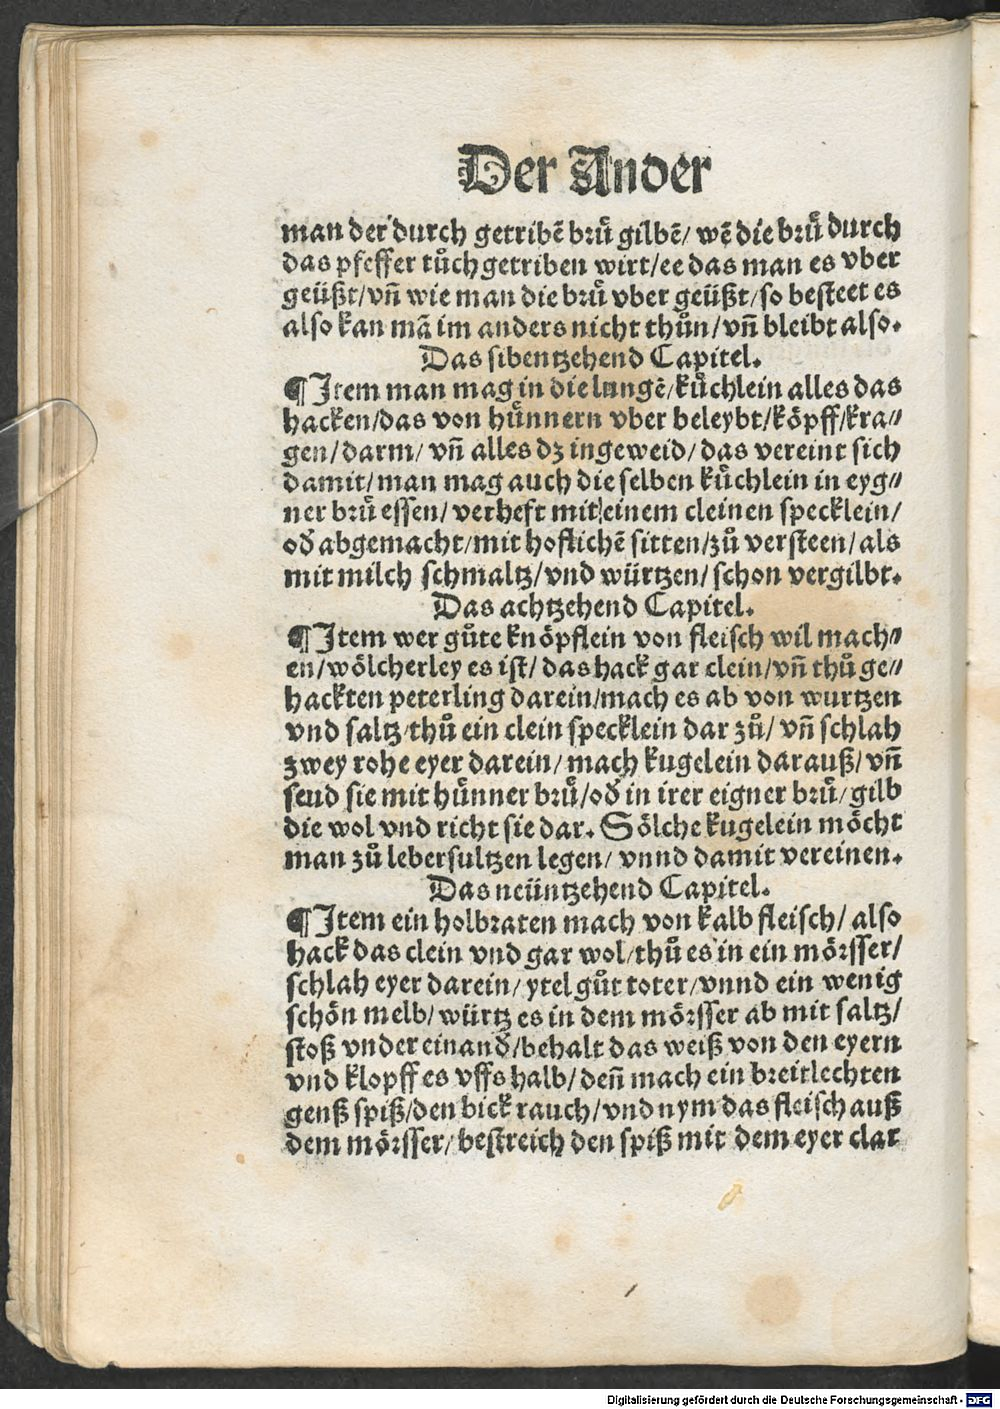 Der Ander
man der durch getribē brů gilbē/ wē die brů durch
das pfeffer tůch getriben wirt/ee das man es vber
geüßt/vñ wie man die brů vber geüßt/so besteet es
also kan mā im anders nicht thůn/vñ bleibt also.
Das sibentzehend Capitel.
¶Item man mag in die lungē/kůchlein alles das
hacken/das von hůnnern vber beleybt/köpff/kra⸗
gen/darm/ vñ alles dz ingeweid/das vereint sich
damit/man mag auch die selben kůchlein in eyg⸗
ner brů essen/ verheft mit einem cleinen specklein/
od abgemacht/mit hoflichē sitten/zů versteen/als
mit milch schmaltz/vnd würtzen/schon vergilbt.
Das achtzehend Capitel.
¶Item wer gůte knöpflein von fleisch wil mach⸗
en/wölcherley es ist/ das hack gar clein/vñ thů ge⸗
hackten peterling darein/mach es ab von wurtzen
vnd saltz/thů ein clein specklein dar zů/ vñ schlah
zwey rohe eyer darein/ mach kugelein darauß/vñ
seud sie mit hůnner brů/od in irer eigner brů/gilb
die wol vnd richt sie dar. Sölche kugelein möcht
man zů lebersultzen legen/ vnnd damit vereinen.
Das neüntzehend Capitel.
¶Item ein holbraten mach von kalb fleisch/ also
hack das clein vnd gar wol/thů es in ein mörsser/
schlah eyer darein/ytel gůt toter/vnnd ein wenig
schön melb/würtz es in dem mörsser ab mit saltz/
stoß vnder einand/behalt das weiß von den eyern
vnd klopff es vffs halb/deñ mach ein breitlechten
genß spiß/den bick rauch/vnd nym das fleisch auß
dem mörsser/bestreich den spiß mit dem eyer clar
Digitalisierung gefördert durch die Deutsche Forschungsgemeinschaft - DFG